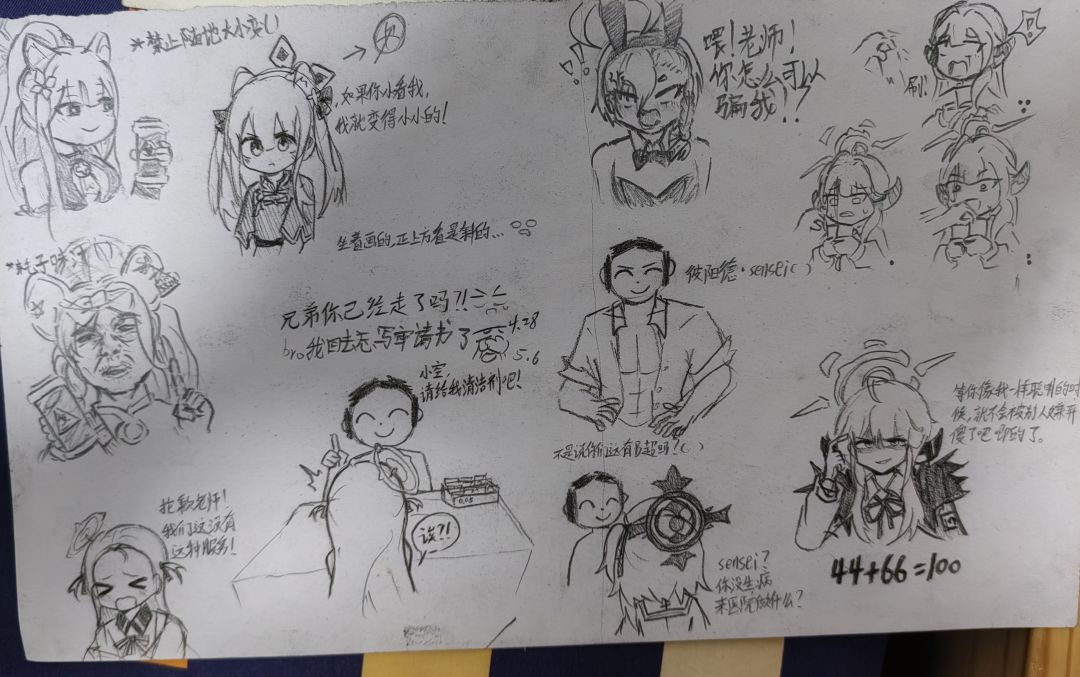 *禁止随地大小变()
如果你小看我,
我就变得小小的!
喂!老师!
你怎么可以
骗我!?
刷!
坐着画的,正上方看是斜的...
兄弟你已经走了吗?!
bro我回去无写申请书了
4.28
5.6
彼阻德·sensei()
小空,
请给我清洁剂吧!
不是说你们这有B超吗!()
等你像我一样聪明的时
候,就不会被别人当
傻了吧唧的了。
抱歉老师!
我们这没有
这种服务!
0.05
诶?!
sensei?
你没生病
来医院做什么?
44+66=100